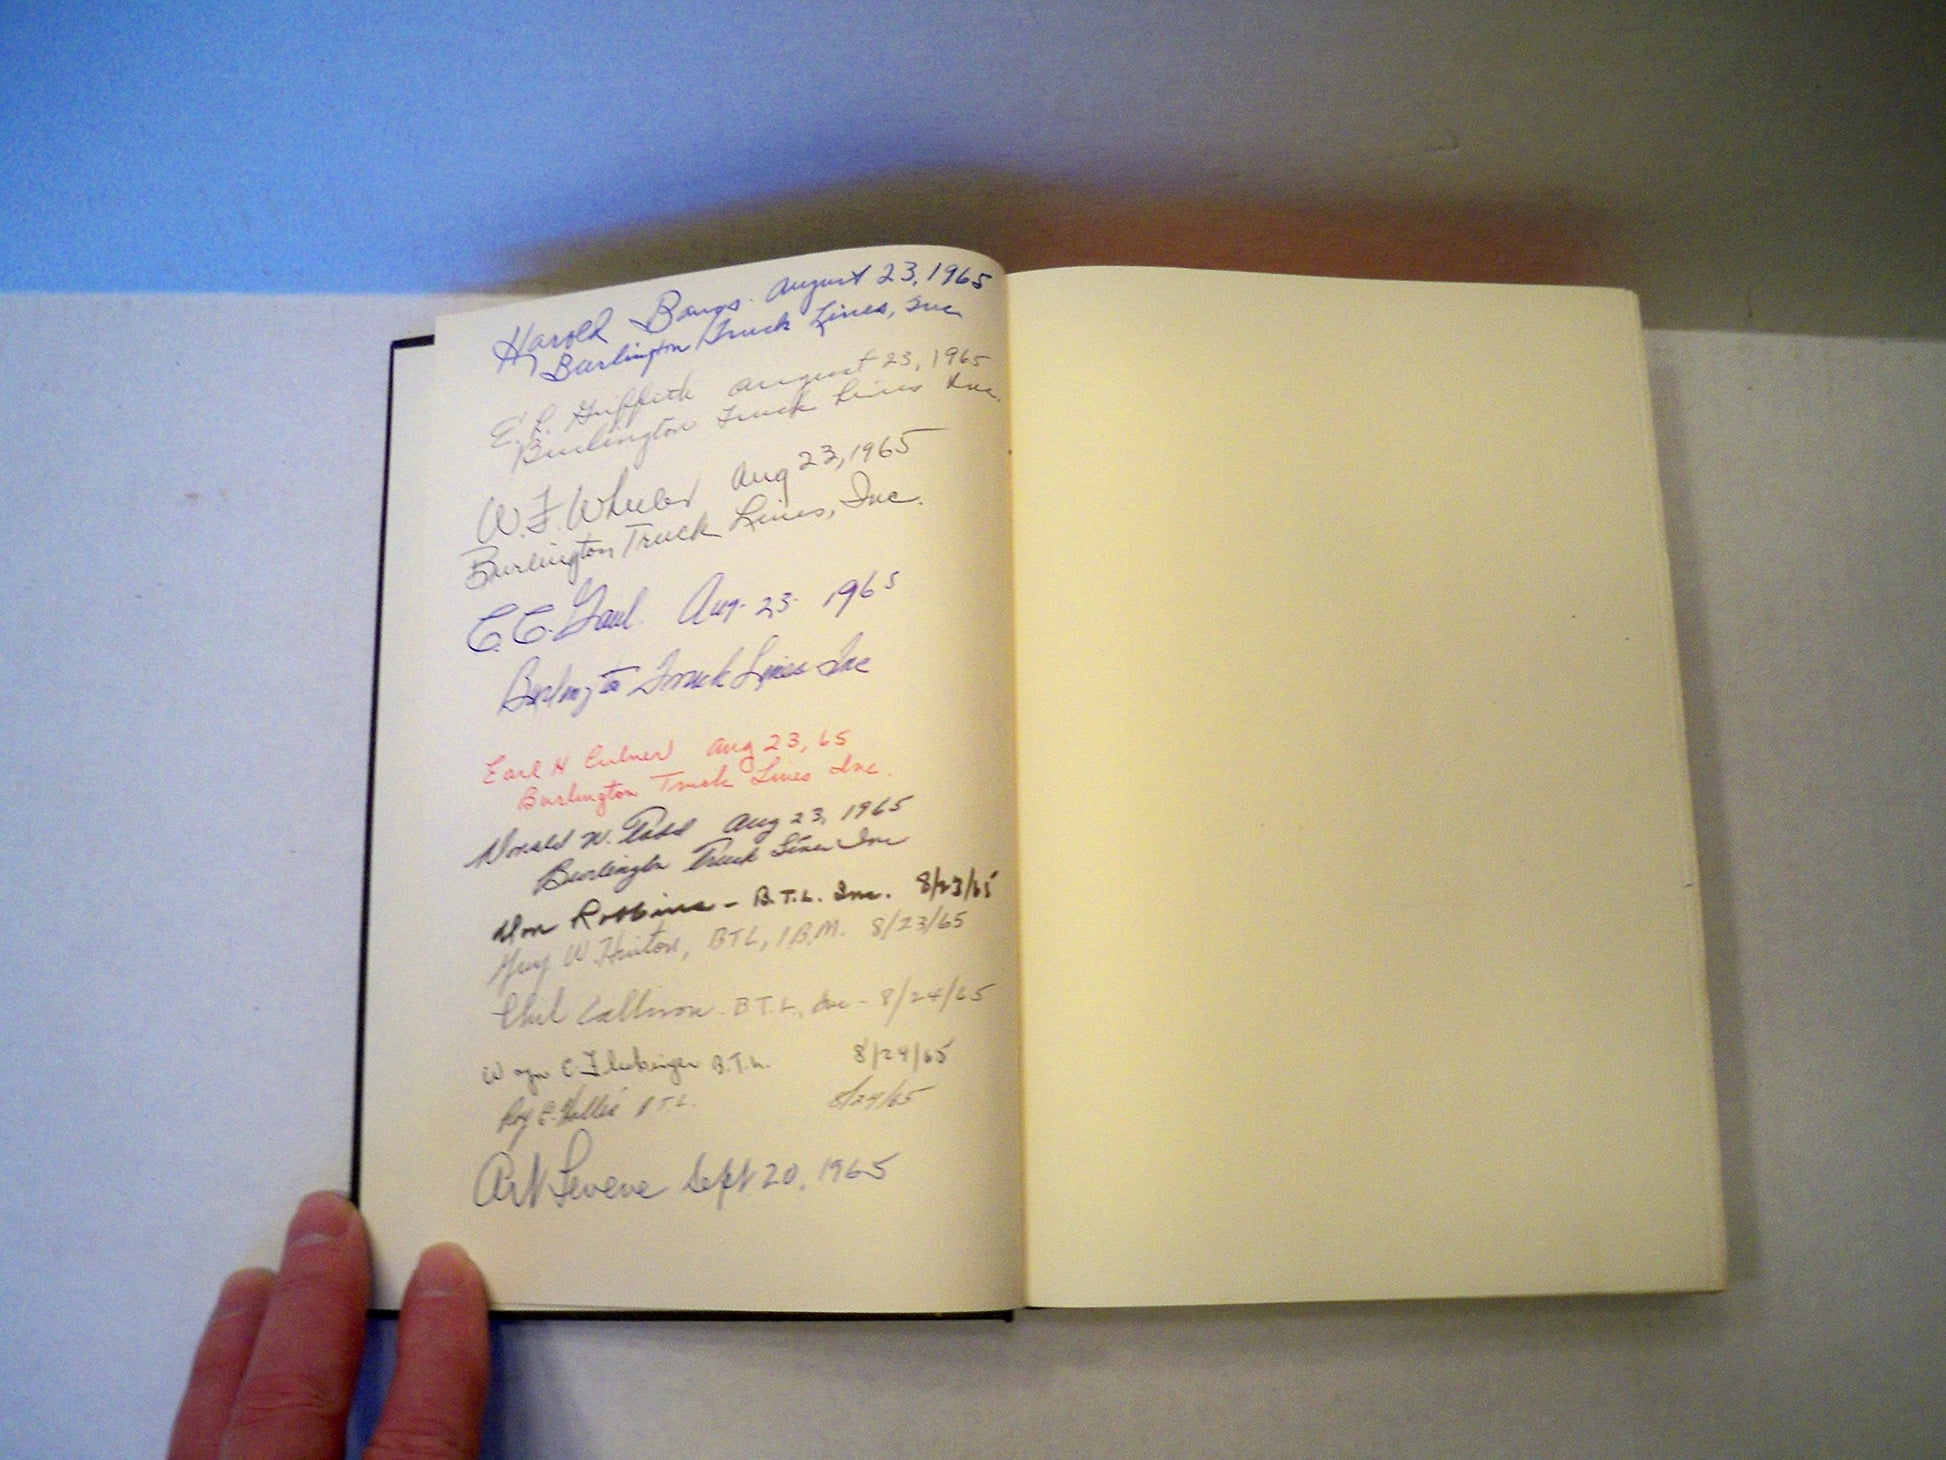 Harold Bangs. August 23, 1965
Burlington Truck Lines, Inc
E. L. Griffith August 23, 1965
Burlington Truck Lines Inc.
W. F. Wheeler Aug 23, 1965
Burlington Truck Lines, Inc.
C. C. Gaul Aug. 23. 1965
Burlington Truck Lines Inc
Earl H Aug 23, 65
Burlington Truck Lines Inc.
Donald W. Todd Aug 23, 1965
Burlington Truck Lines Inc
Don Robbins - B.T.L. Inc. 8/23/65
Guy W Hinton, BTL, I.B.M. 8/23/65
Phil Callison. B T. L., Inc - 8/24/65
C. B.T.L. 8/24/65
Roy E. B T.L. 8/24/65
Art Levene Sept 20, 1965